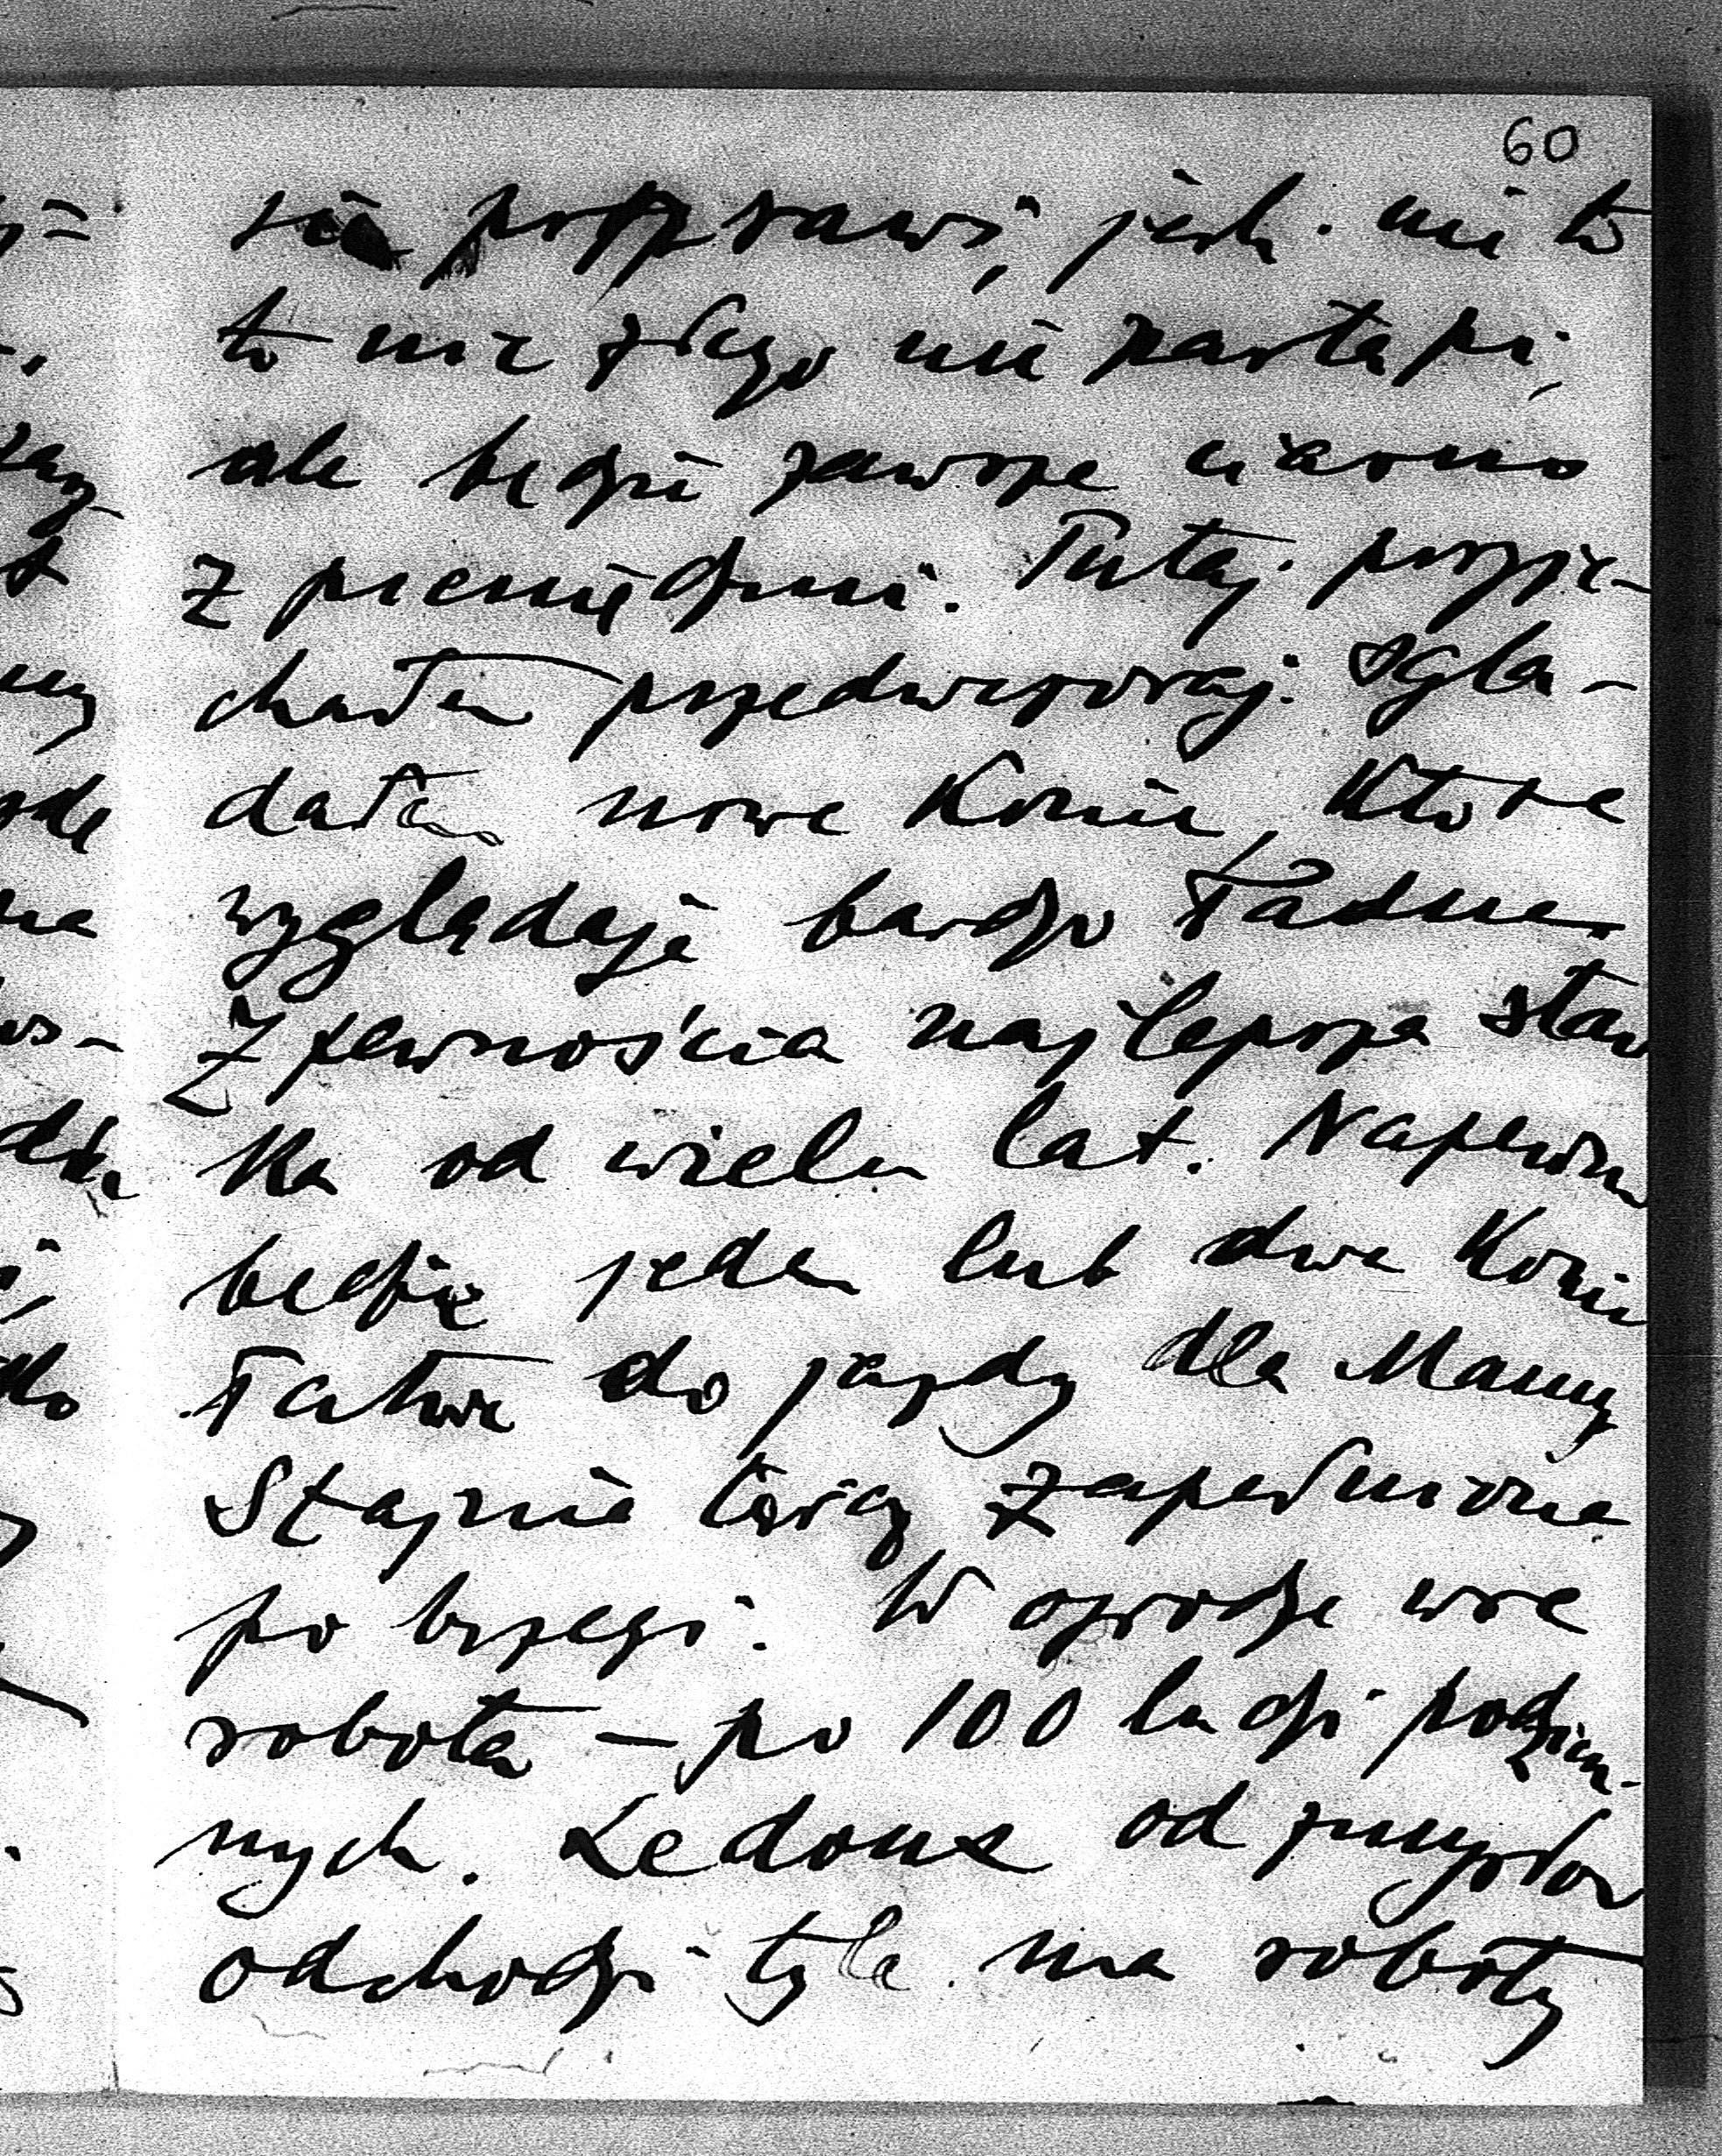 60
się poprawi, jeśli nie to
to nic złego nie nastąpi,
ale będzie zawsze ciasno
z pieniędzmi. Tutaj przyje-
chałem przedwczoraj. Oglą-
dałem nowe konie, które
wyglądają bardzo ładne.
Z pewnością najlepsza staw
ka od wielu lat. Napewno
będzie jeden lub dwa konie
łatwe do jazdy dla Mamy
Stajnie zapełnione
po brzegi. W ogrodzie wre
robota – po 100 ludzi podzien-
nych. Ledoux od zmysłów
odchodzi tyle ma roboty